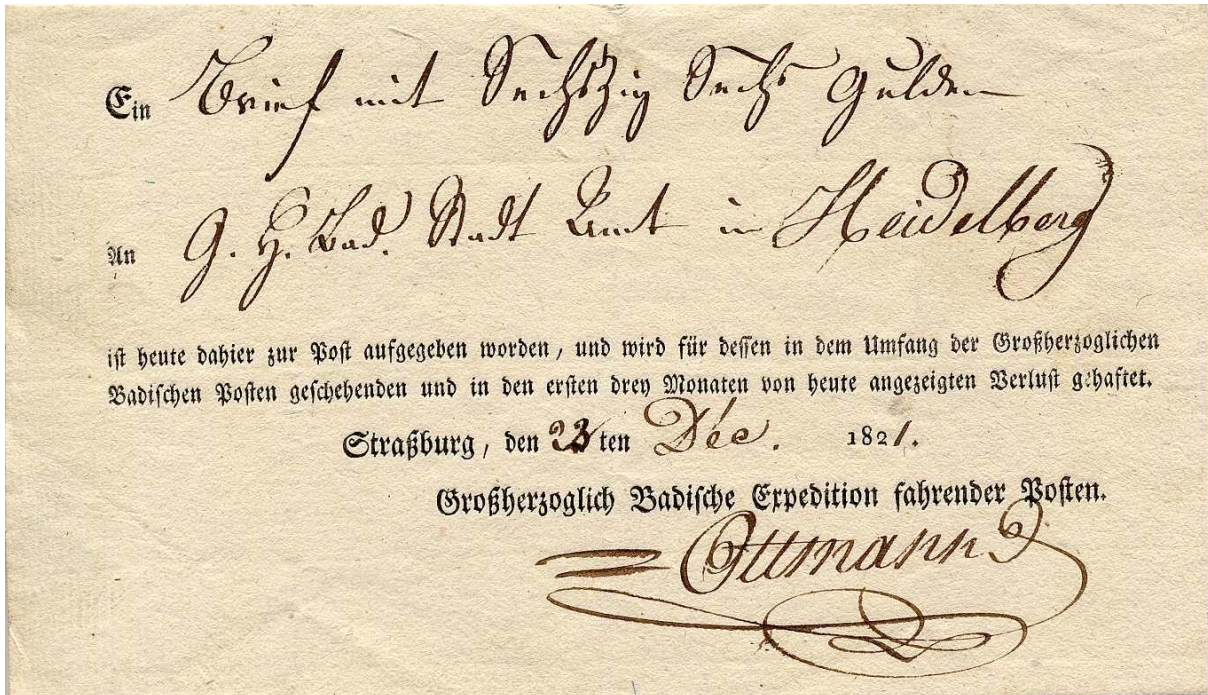 Ein Brief mit Sechszig Sechs Gulden
An G. H. Bad. Stadt Amt in Heidelberg
ist heute dahier zur Post aufgegeben worden, und wird für dessen in dem Umfang der Großherzoglichen
Badischen Posten geschehenden und in den ersten drey Monaten von heute angezeigten Verlust gehaftet.
Straßburg, den 23ten Déc. 1821.
Großherzoglich Badische Expedition fahrender Posten.
Ottmann